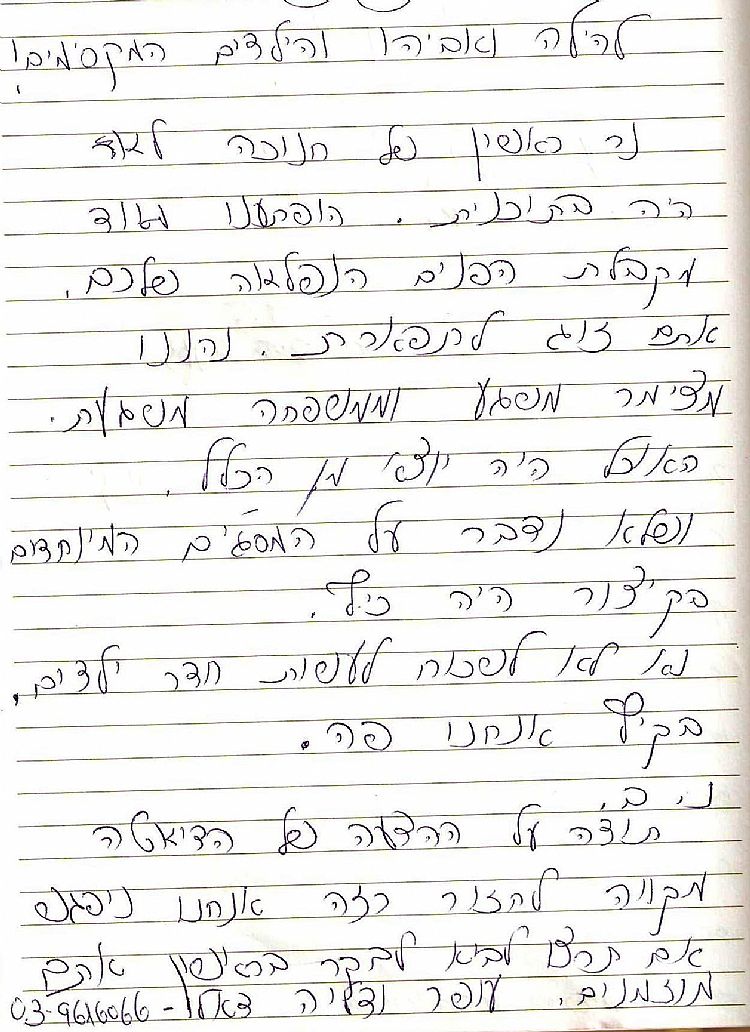 להילה ואביהו והילדים המקסימים!
נר ראשון של חנוכה לא
היה בתוכנית. הופתענו מאוד
מקבלת הפנים הנפלאה שלכם.
אתם זוג לתפארת. נהננו
מצימר משגע וממשפחה משגעת.
האוכל היה יוצא מן הכלל.
ושלא נדבר על המסג'ים המיוחדים
בקיצור היה כיף.
נא לא לשכוח לעשות חדר ילדים,
בקיץ אנחנו פה.
נ.ב.
תודה על ההצעה של הדיאטה
מקווה לחזור רזה אנחנו ניפגש
אם תרצו לבוא לבקר בראשון אתם
מוזמנים. עופר ודליה 03-9616066